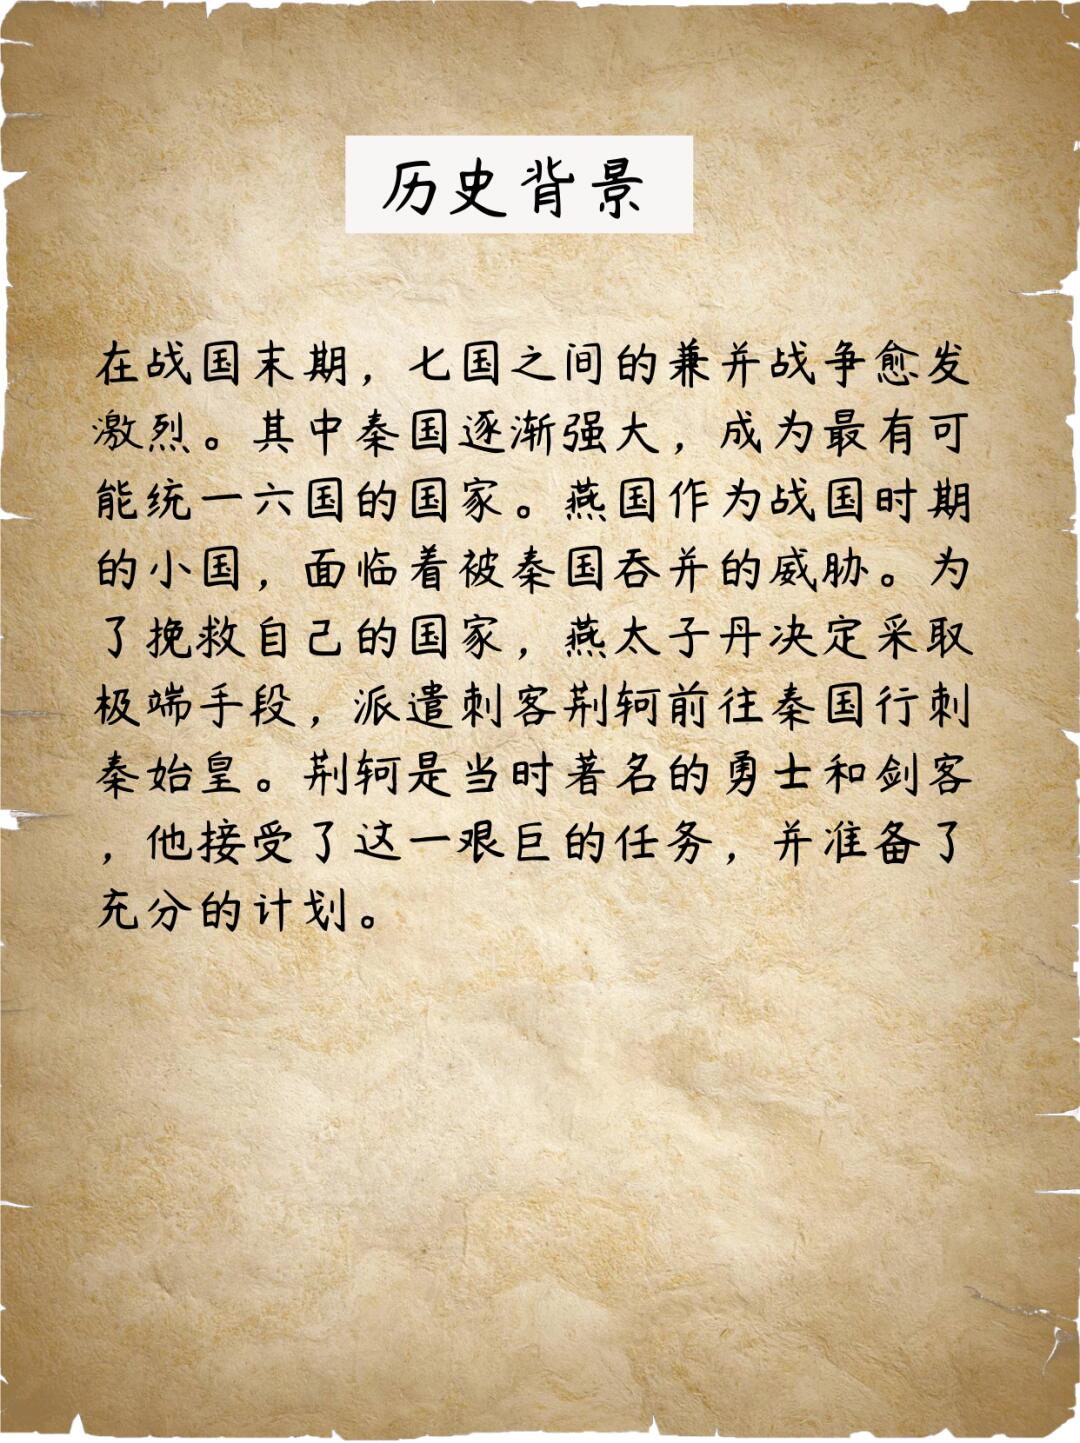 历史背景
在战国末期，七国之间的兼并战争愈发
激烈。其中秦国逐渐强大，成为最有可
能统一六国的国家。燕国作为战国时期
的小国，面临着被秦国吞并的威胁。为
了挽救自己的国家，燕太子丹决定采取
极端手段，派遣刺客荆轲前往秦国行刺
秦始皇。荆轲是当时著名的勇士和剑客
，他接受了这一艰巨的任务，并准备了
充分的计划。